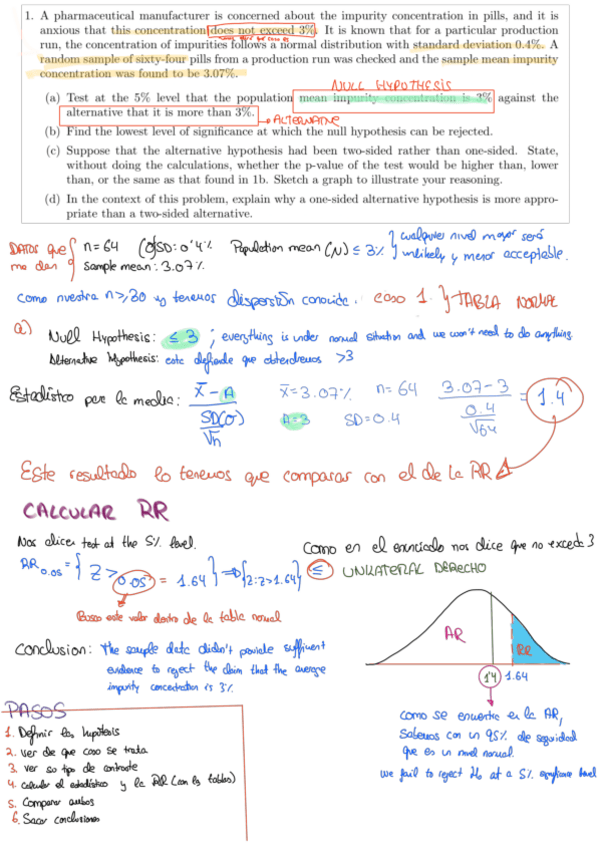 1. A pharmaceutical manufacturer is concerned about the impurity concentration in pills, and it is
anxious that this concentration does not exceed 3%. It is known that for a particular production
run, the concentration of impurities follows a normal distribution with standard deviation 0.4%. A
random sample of sixty-four pills from a production run was checked and the sample mean impurity
concentration was found to be 3.07%.
NULL HYPOTHESIS
(a) Test at the 5% level that the population mean impurity concentration is 3% against the
alternative that it is more than 3%.
ALTERNATIVE
(b) Find the lowest level of significance at which the null hypothesis can be rejected.
(c) Suppose that the alternative hypothesis had been two-sided rather than one-sided. State,
without doing the calculations, whether the p-value of the test would be higher than, lower
than, or the same as that found in 1b. Sketch a graph to illustrate your reasoning.
(d) In the context of this problem, explain why a one-sided alternative hypothesis is more appro-
priate than a two-sided alternative.
DATOS que me dan
n=64 (σ)SD: 0'4% Population mean (N) ≤ 3%
Sample mean: 3.07%
cualquier nivel mayor será
unlikely y menor acceptable.
como nuestra n≥30 y tenemos dispersión conocida: caso 1. TABLA NORMAL
a) Null Hypothesis: ≤ 3 ; everything is under normal situation and we won't need to do anything.
Alternative Hypothesis: esta defiende que obtendremos >3
Estadístico para la media: x̄ - A / SD(σ) / √n
x̄=3.07% n=64
A=3 SD=0.4
3.07-3 / 0.4 / √64 = 1.4
Este resultado lo tenemos que comparar con el de la RR
CALCULAR RR
Nos dicen test at the 5% level.
RR 0.05 = { Z > 0.05 = 1.64 } ⇒ {z:z>1.64}
Busco este valor dentro de la tabla normal
Como en el enunciado nos dice que no excede 3
≤ UNILATERAL DERECHO
AR
RR
1'4 1.64
Conclusion: The sample data didn't provide sufficient
evidence to reject the claim that the average
impurity concentration is 3%
como se encuentra en la AR,
Sabemos con un 95% de seguridad
que es un nivel normal.
we fail to reject H0 at a 5% significance level
PASOS
1. Definir las hipótesis
2. ver de que caso se trata
3. ver su tipo de contraste
4. calcular el estadístico y la RR (con las tablas)
5. Comparar ambos
6. Sacar conclusiones